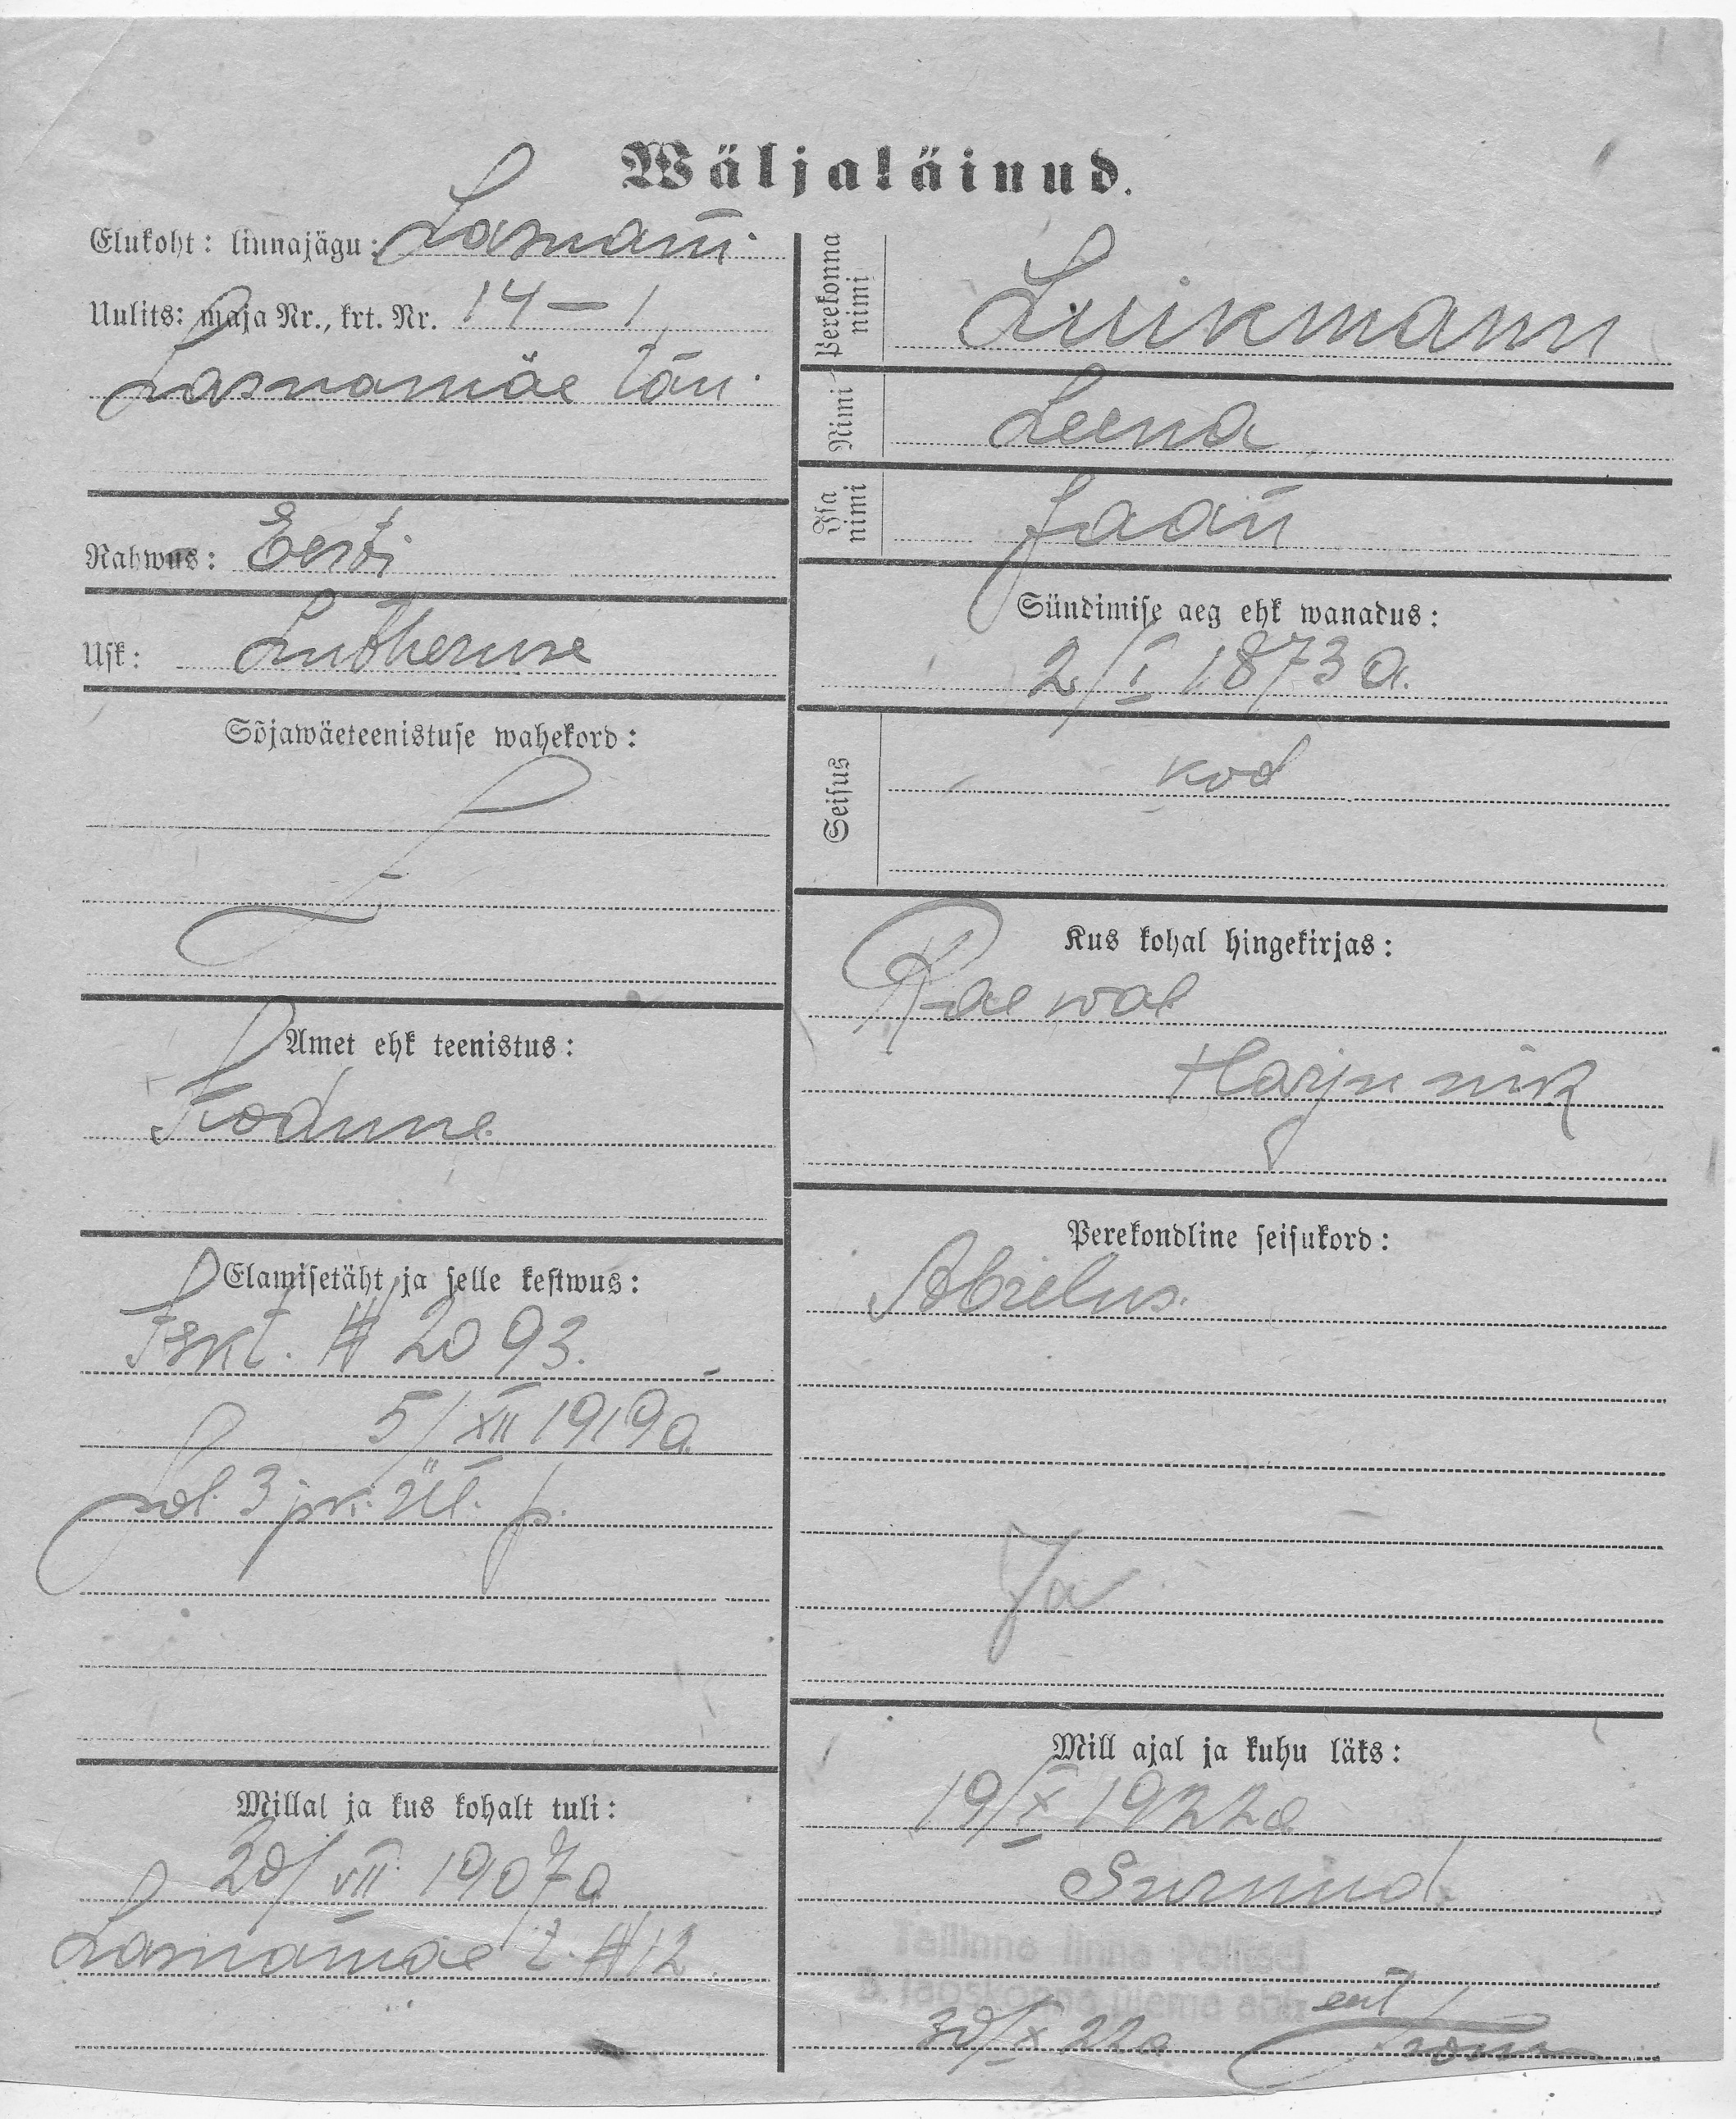 Wäljaläinud.
Elukoht: linnajägu: Lasnam.
Uulits: maja Nr., krt. Nr. 14 — 1,
Lasnamäe tän.
Rahwus: Eesti
Usk: Lutheruse
Sõjawäeteenistuse wahekord:
Amet ehk teenistus:
Kodune
Elamisetäht ja selle kestwus:
Iskt. # 2093.
5/XII 1919 a
pol. 3 jsk. ül. p.
Millal ja kus kohalt tuli:
20/VII 1907 a
Lasnamäe t. # 12
Perekonna nimi
Luikmann
Nimi
Leena
Isa nimi
Jaan
Sündimise aeg ehk wanadus:
2/I 1873 a.
Seisus
kod
Kus kohal hingekirjas:
Rae wal
Harju mk
Perekondline seisukord:
Abielus.
Ja
Mill ajal ja kuhu läks:
19/X 1922 a
Surnud.
Tallinna linna Politsei
3. jaoskonna ülema abi
30/X 22 a